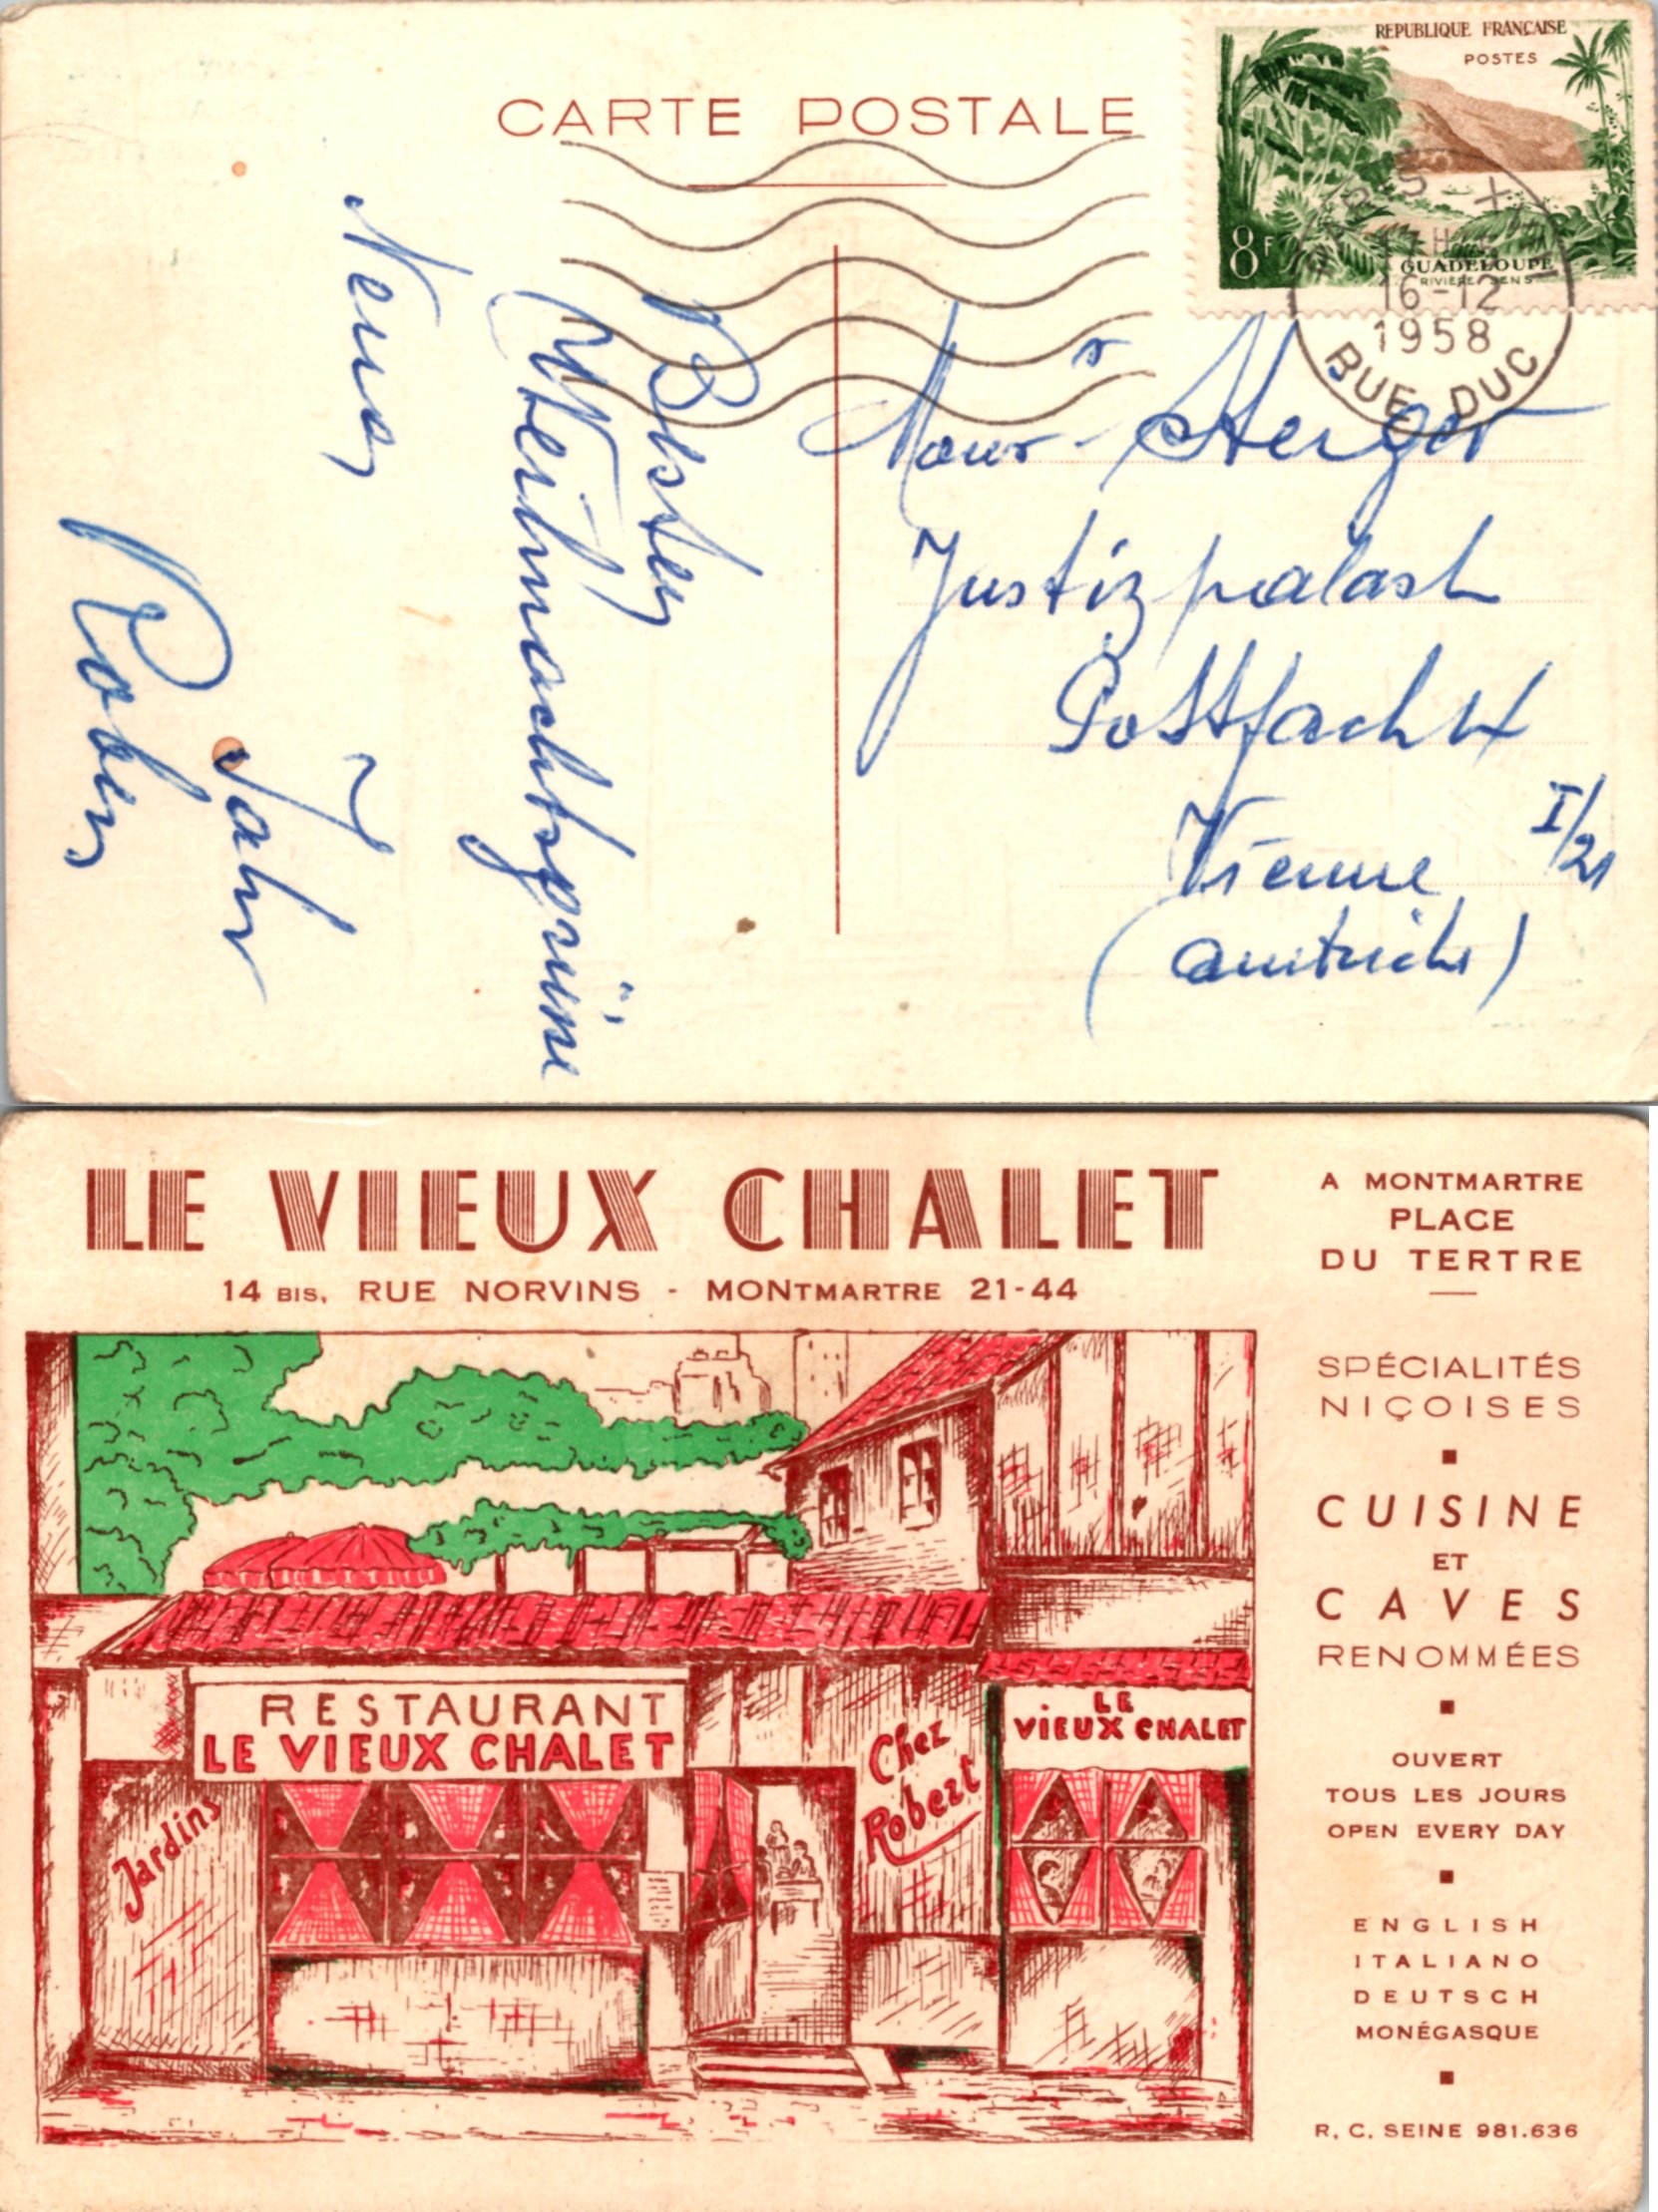 CARTE POSTALE
REPUBLIQUE FRANÇAISE
POSTES
8F
GUADELOUPE
RIVIERE SENS
PARIS XVIII
17H
16-12
1958
RUE DUC
Besten
Weihnachtsgrüsse
Neues
Jahr
Robert
Steiger
Justizpalast
Postfach
I/21
Vienne
(Autriche)
LE VIEUX CHALET
14 BIS, RUE NORVINS - MONTMARTRE 21-44
A MONTMARTRE
PLACE
DU TERTRE
SPÉCIALITÉS
NIÇOISES
CUISINE
ET
CAVES
RENOMMÉES
OUVERT
TOUS LES JOURS
OPEN EVERY DAY
ENGLISH
ITALIANO
DEUTSCH
MONÉGASQUE
R. C. SEINE 981.636
RESTAURANT
LE VIEUX CHALET
Jardins
Chez
Robert
LE
VIEUX CHALET